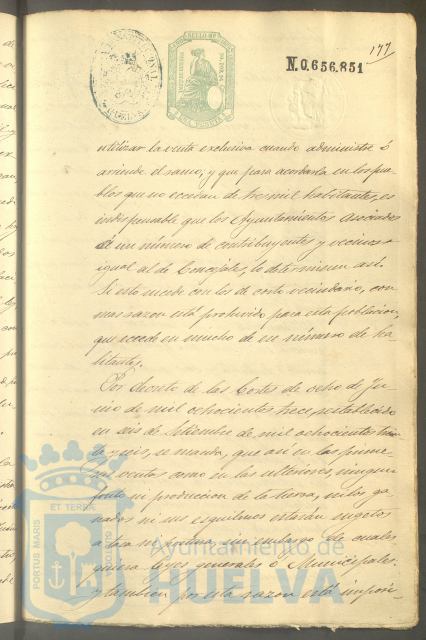 177
N.0.656.851
utilizar la venta exclusiva cuando administre ó
arriende el ramo; y que para acordarla en los pue-
blos que no excedan de tres mil habitantes, es
indispensable que los Ayuntamientos asociados
de un número de contribuyentes y vecinos
igual al de Concejales, lo determinen así.
Si esto sucede con los de corto vecindario, con
mas razon está prohivido para esta poblacion,
que excede en mucho de ese número de ha-
bitantes.
Por decreto de las Cortes de ocho de Ju-
nio de mil ochocientos trece restablecido
en seis de Setiembre de mil ochocientos trein-
ta y seis, se manda, que asi en las prime-
ras ventas como en las ulteriores, ningun
fruto ni produccion de la tierra, ni los ga-
nados ni sus esquilmos estarán sugetos
a tasa ni postura, sin embargo de cuales
quiera leyes generales ó Municipales:
y tambien por esta razon está
PORTUS MARIS ET TERRAE CUSTODIA
Ayuntamiento de
HUELVA